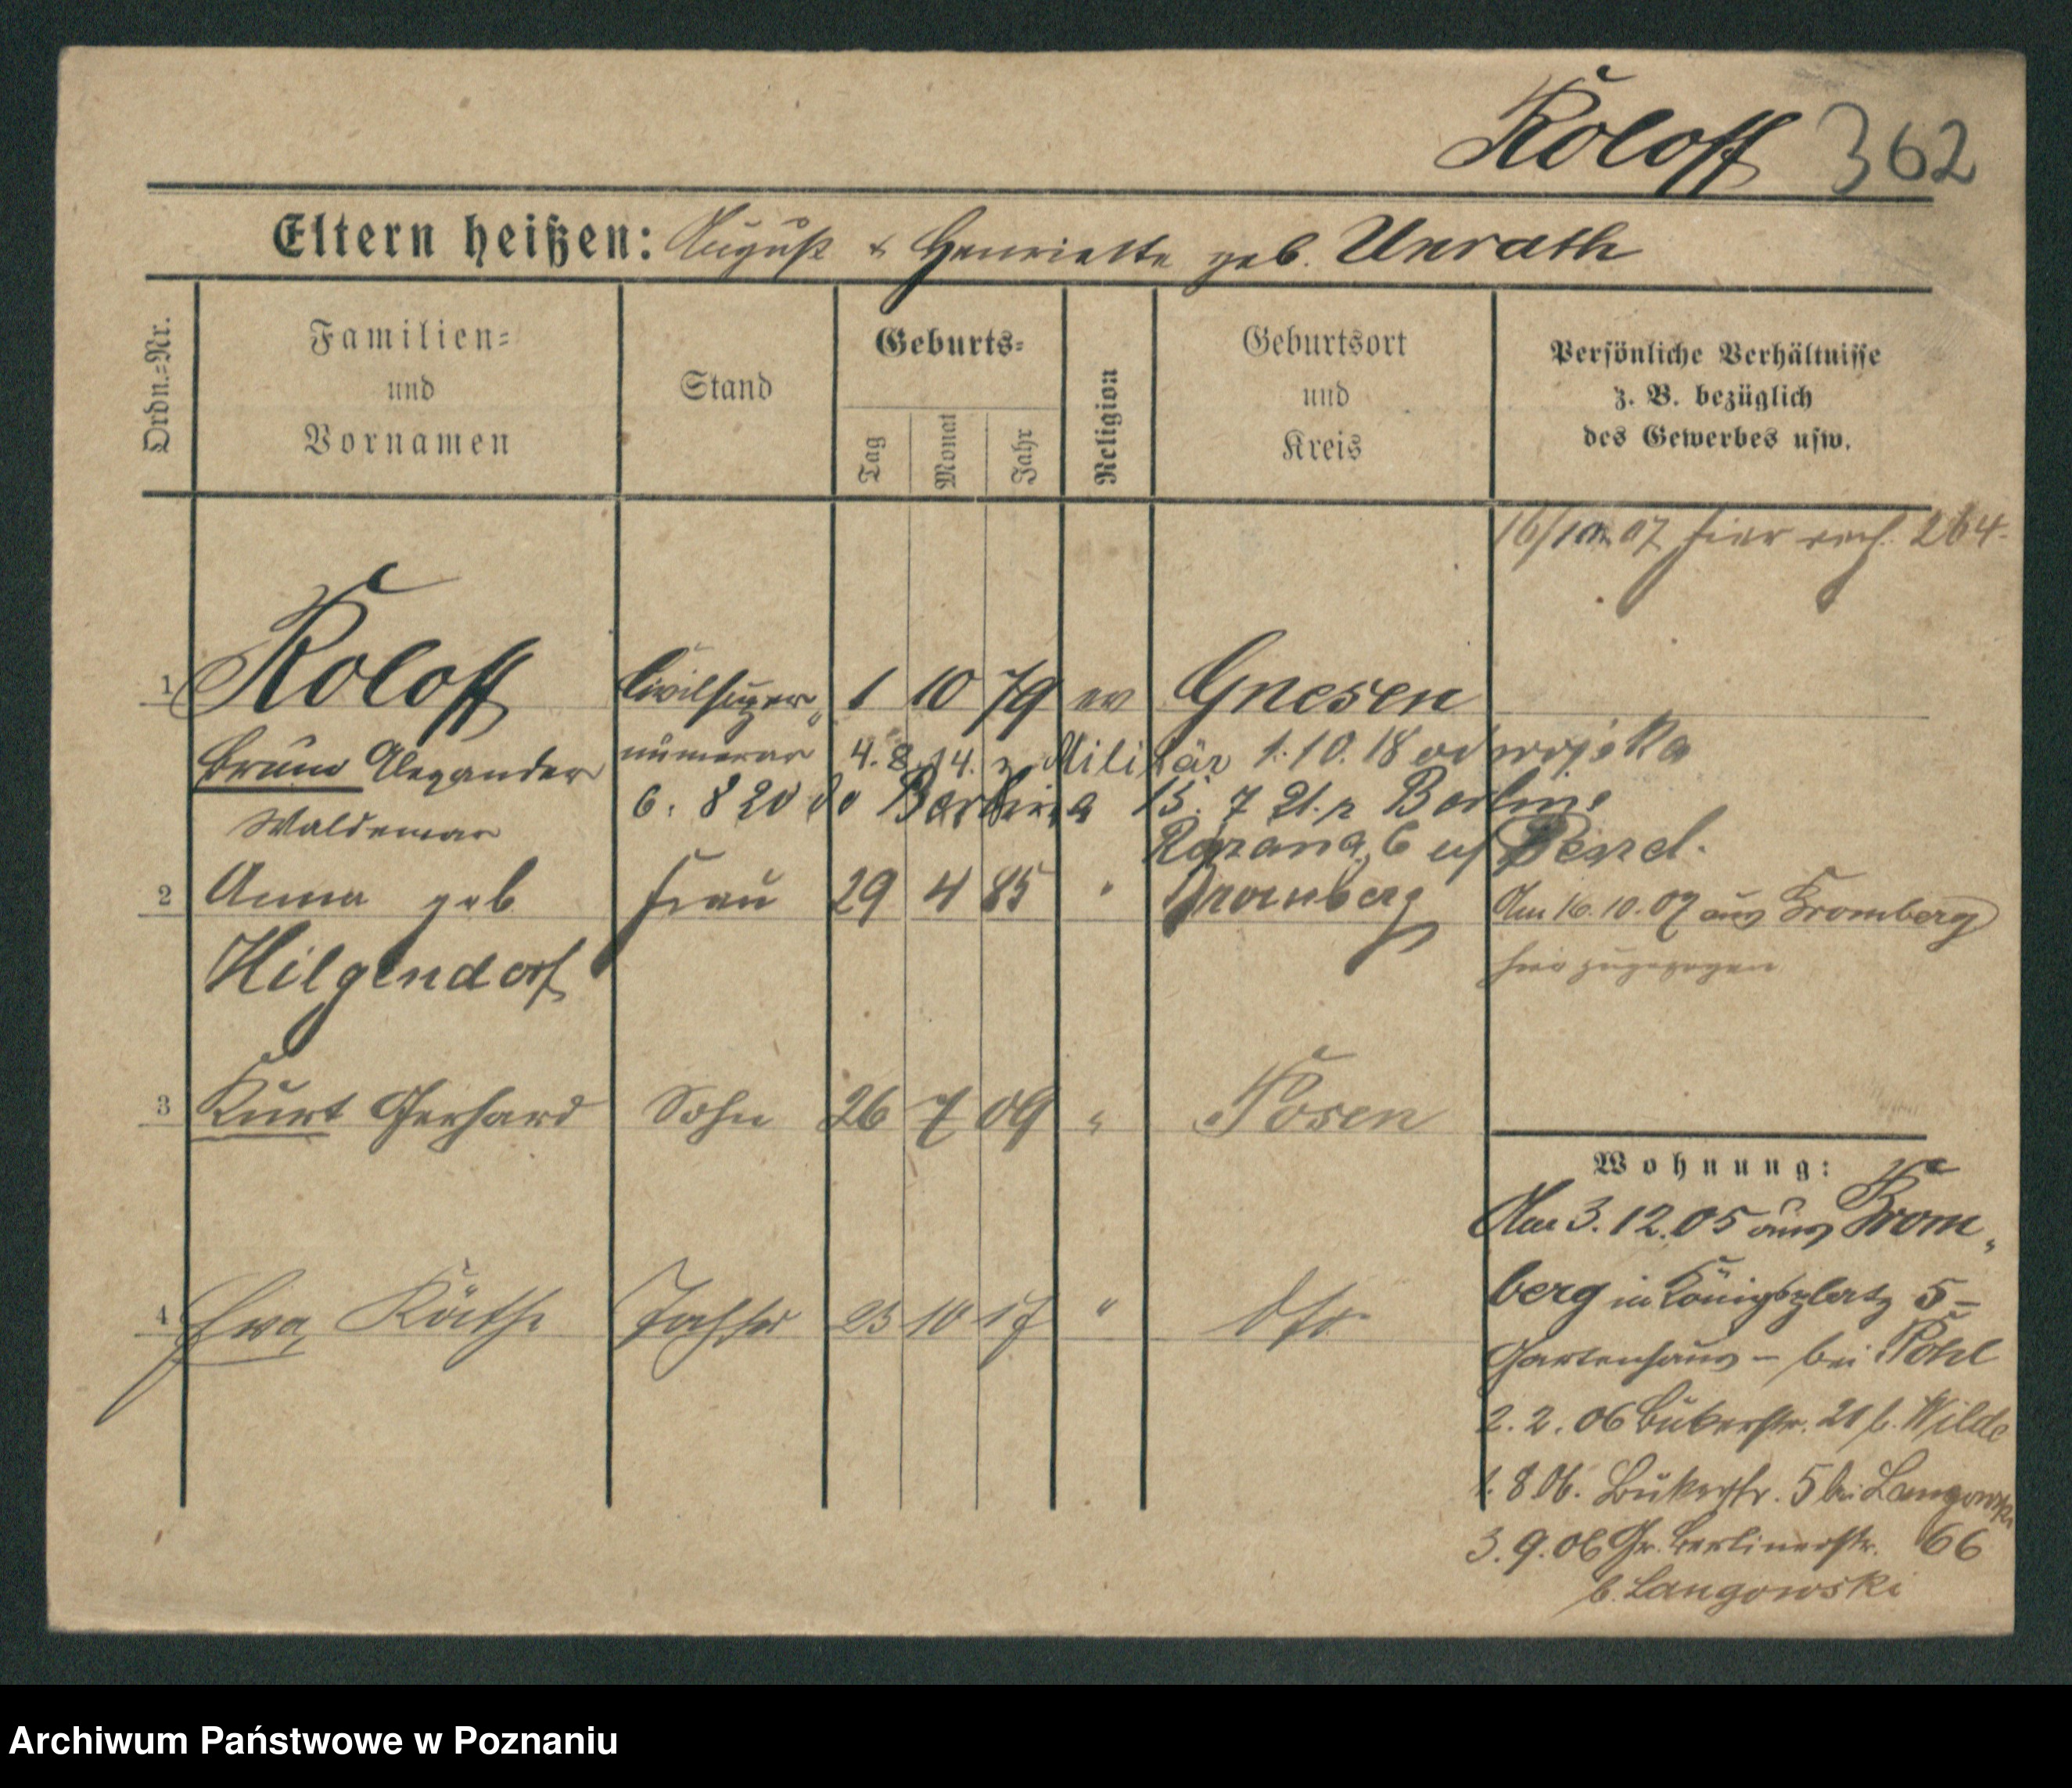 Roloff 362
Eltern heißen: August & Henriette geb. Unrath
Ordn.=Nr.
Familien=
und
Vornamen
Stand
Geburts=
Tag
Monat
Jahr
Religion
Geburtsort
und
Kreis
Persönliche Verhältnisse
z. B. bezüglich
des Gewerbes usw.
16/10.07 hier 264.
1 Roloff Civilsuper„ 1 10 79 ev Gnesen
Bruno Alexander numerar 4.8.14. z Militär 1.10.18 od wojska
Waldemar 6. 8 20 do Berlina 15. 7 21. z Berlina
6
2 Anna geb Frau 29 4 85 " Bromberg Am 16.10.07 aus Bromberg
Hilgendorf hier zugezogen
3 Kurt Gerhard Sohn 26 7 09 " Posen
4 Eva Käthe Tochter 23 10 17 " dto
Wohnung:
Am 3.12.05 aus Brom„
berg in Königsplatz 5 –
Gartenhaus – bei Pohl
2.2.06 Bukerstr. 21 b. Wilde
1.8.06. Bukerstr. 5 bei Langowski
3.9.06 Gr. Berlinerstr. 66
b. Langowski
Archiwum Państwowe w Poznaniu